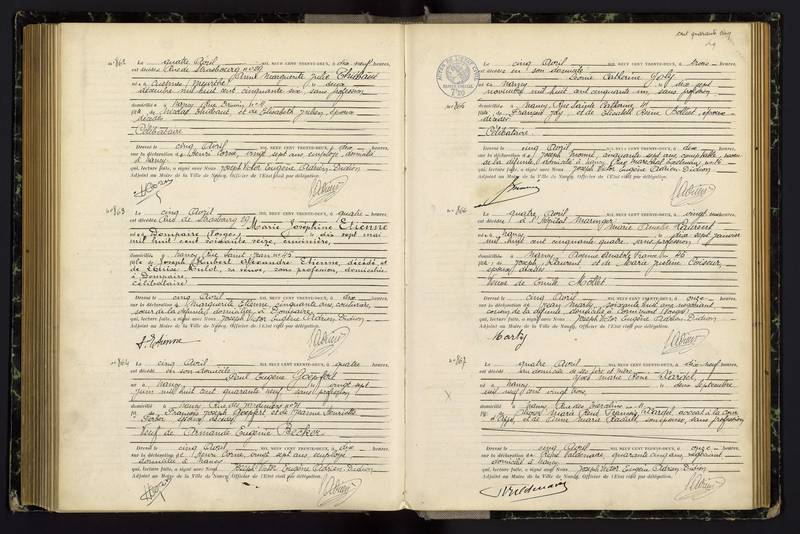 N° 862 Le quatre Avril MIL NEUF CENT TRENTE-DEUX, à dix neuf heures,
est décédée Rue de Strasbourg n° 29
Anne Marguerite Julie Thiébaut
née à (Meurthe) le deux
décembre mil huit cent cinquante six sans profession
domiciliée à Nancy, Rue n°
fille de Nicolas Thiébaut et de Elisabeth Julien, époux
décédés
Célibataire
Dressé le cinq Avril MIL NEUF CENT TRENTE-DEUX, à dix heures,
sur la déclaration de Henri Cornu, vingt sept ans, employé domicilié
à Nancy
qui, lecture faite, a signé avec Nous Joseph Victor Eugène Adrien Didion
Adjoint au Maire de la Ville de Nancy, Officier de l'Etat civil par délégation.
N° 863 Le cinq Avril MIL NEUF CENT TRENTE-DEUX, à quatre heures,
est décédée Rue de Strasbourg 29
Marie Joséphine Etienne
née à Dompaire (Vosges) le dix sept mai
mil huit cent soixante seize, cuisinière,
domiciliée à Nancy Rue Saint Jean n° 45
fille de Joseph Hubert Alexandre Etienne, décédé et
de Louise Mulot, sa veuve, sans profession, domiciliée
à Dompaire,
célibataire
Dressé le cinq Avril MIL NEUF CENT TRENTE-DEUX, à dix heures,
sur la déclaration de Marguerite Etienne, cinquante ans, couturière,
soeur de la défunte, domiciliée à Dompaire
qui, lecture faite, a signé avec Nous Joseph Victor Eugène Adrien Didion
Adjoint au Maire de la Ville de Nancy, Officier de l'Etat civil par délégation.
Etienne
N° 864 Le cinq Avril MIL NEUF CENT TRENTE-DEUX, à quatre heures,
est décédé en son domicile
Paul Eugène Goepfert
né à Nancy le vingt sept
juin mil huit cent quatre neuf, sans profession
domicilié à Nancy Rue des Jardiniers n° 71
fils de François Joseph Goepfert et de Jeanne Henriette
époux décédés
Veuf de Armande Eugénie Becker
Dressé le cinq Avril MIL NEUF CENT TRENTE-DEUX, à dix heures,
sur la déclaration de Henri Cornu, vingt sept ans, employé
domicilié à Nancy
qui, lecture faite, a signé avec Nous Joseph Victor Eugène Adrien Didion
Adjoint au Maire de la Ville de Nancy, Officier de l'Etat civil par délégation.
cent quarante cinq
N° 865 Le cinq Avril MIL NEUF CENT TRENTE-DEUX, à trois heures,
est décédée en son domicile
Léonie Catherine Joly
née à Nancy le dix sept
novembre mil huit cent cinquante cinq, sans profession
domiciliée à Nancy, Rue Sainte
fille de François Joly et de Elisabeth époux
décédés
Célibataire
Dressé le cinq Avril MIL NEUF CENT TRENTE-DEUX, à dix heures,
sur la déclaration de Joseph cinquante sept ans, comptable,
de la défunte, domicilié à Nancy
qui, lecture faite, a signé avec Nous Joseph Victor Eugène Adrien Didion
Adjoint au Maire de la Ville de Nancy, Officier de l'Etat civil par délégation.
N° 866 Le quatre Avril MIL NEUF CENT TRENTE-DEUX, à vingt heures,
est décédée à l'Hôpital Maringer
Marie Amélie Laurent
née à Nancy le dix sept janvier
mil huit cent cinquante quatre, sans profession
domiciliée à Nancy, Avenue Anatole France n° 46
fille de Joseph Laurent et de Marie Justine
époux décédés
Veuve de Emile Mollet
Dressé le cinq Avril MIL NEUF CENT TRENTE-DEUX, à onze heures,
sur la déclaration de Jean Marty, soixante huit ans, négociant,
cousin de la défunte, domicilié à Cornimont (Vosges)
qui, lecture faite, a signé avec Nous Joseph Victor Eugène Adrien Didion
Adjoint au Maire de la Ville de Nancy, Officier de l'Etat civil par délégation.
Marty
N° 867 Le quatre Avril MIL NEUF CENT TRENTE-DEUX, à dix neuf heures,
est décédé au domicile de ses père et mère
Marie
né à Nancy le deux Septembre
mil neuf cent vingt trois
domicilié à Nancy, Rue
fils de Marie Paul François avocat à la Cour
d'Appel, et de Anne Marie son épouse, sans profession
Dressé le cinq Avril MIL NEUF CENT TRENTE-DEUX, à onze heures,
sur la déclaration de quarante cinq ans,
domicilié à Nancy
qui, lecture faite, a signé avec Nous Joseph Victor Eugène Adrien Didion
Adjoint au Maire de la Ville de Nancy, Officier de l'Etat civil par délégation.